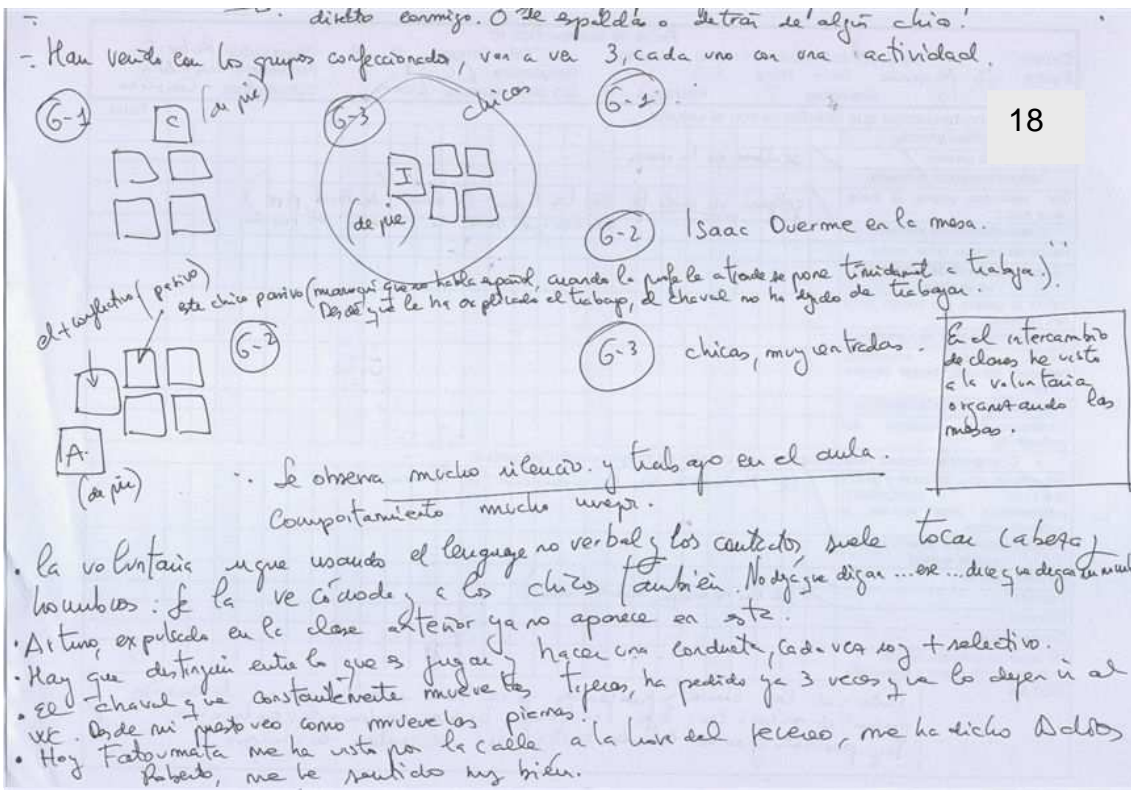 directo conmigo. O de espaldas o detrás de algún chico.
-. Han venido con los grupos confeccionados, van a ver 3, cada uno con una actividad.
18
G-1
C
(de pie)
G-3
chicos
I
(de pie)
G-1
G-2 Isaac Duerme en la mesa.
G-3 chicas, muy centradas.
el + conflictivo (pasivo)
este chico pasivo (marroquí que no habla español, cuando la profe le atiende se pone tímidamente a trabajar.)
Desde que le ha explicado el trabajo, el chaval no ha dejado de trabajar.
G-2
A.
(de pie)
En el intercambio
de clases he visto
a la voluntaria
organizando las
mesas.
Se observa mucho silencio y trabajo en el aula.
Comportamiento mucho mejor.
. La voluntaria sigue usando el lenguage no verbal y los contactos, suele tocar cabeza y
hombros. Se la ve cómoda y a los chicos también. No deja que digan ...ese... dice que digan su
. Arturo, expulsado en la clase anterior ya no aparece en esta.
. Hay que distinguir entre lo que es jugar y hacer una conducta, cada vez soy + selectivo.
. El chaval que constantemente mueve las tijeras, ha pedido ya 3 veces que lo dejen ir al
WC. Desde mi puesto veo como mueve las piernas.
. Hoy Fatoumata me ha visto por la calle a la hora del recreo, me ha dicho Adios
Roberto, me he sentido muy bién.